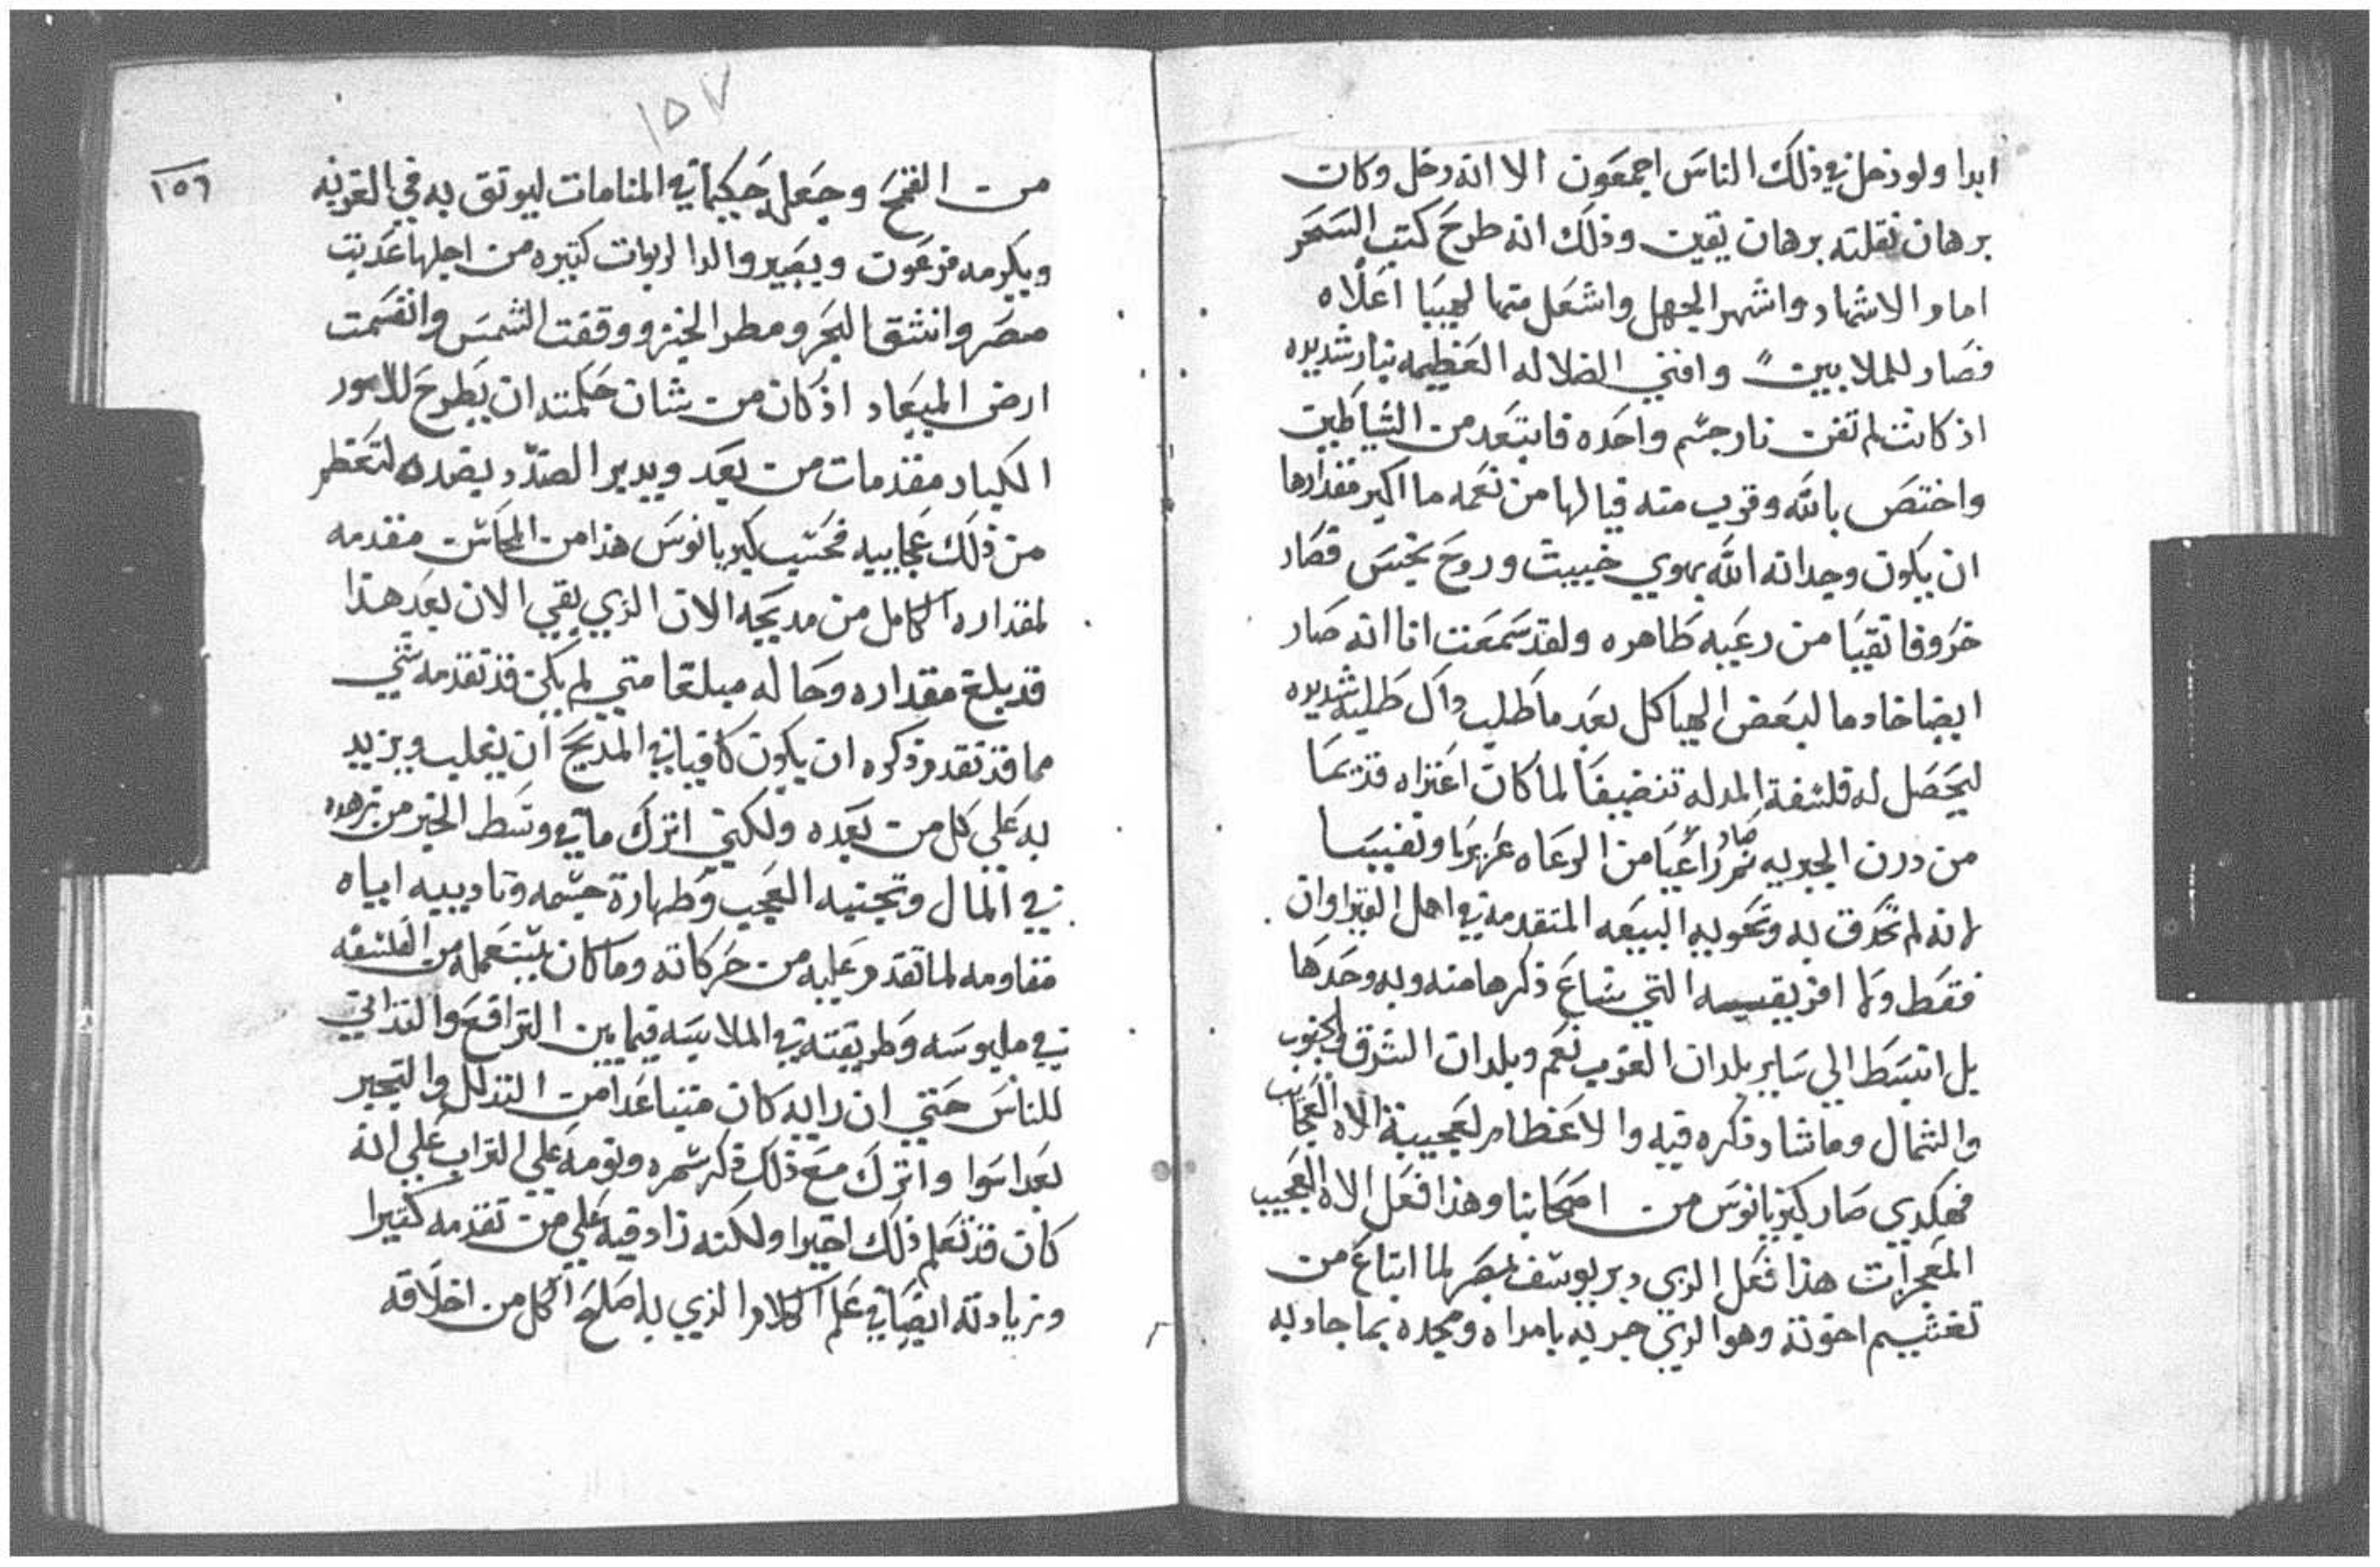 ابدا ولو دخل في ذلك الناس اجمعون الا انه دخل وكان
برهان نقلته برهان يقين وذلك انه طرح كتب السحر
امام الاشهاد واشهر الجهل واشعل منها لهيبا اعلاه
فصار للملابين وافني الضلاله العظيمه بنار شديده
اذ كانت لم تفن نار جسم واحده فابتعد من الشياطين
واختص بالله وقرب منه فيالها من نعمه ما اكبر مقدارها
ان يكون وجدانه الله بهوي خبيث وروح نجس فصار
خروفا نقيا من رعيه طاهره ولقد سمعت انا انه صار
ايضا خادما لبعض الهياكل بعد ما طلب ذاك طلبه شديده
ليحصل له فلسفة المدله تنضيفا لما كان اعتراه قديما
من درن الجبريه ثم صار راعيا من الرعاه عزيزا ونفيسا
لانه لم تحدق به وتحويه البيعه المتقدمه في اهل القيراوان
فقط ولا افريقيه التي شاع ذكرها منه وبه وحدها
بل انبسط الي ساير بلدان الغرب نعم وبلدان الشرق والجنوب
والشمال وما شاد ذكره فيه والاعظام لعجيبة الاه العجايب
فهكدي صار كبريانوس من اصحابنا وهذا فعل الاه العجيب
المعجزات هذا فعل الذي دبر يوسف بمصر لما ابتاع من
تغشيم اخوته وهو الذي جربه بامراه ومجده بما جاد به
١٥٧
١٥٦
من القمح وجعل حكيما في المنامات ليوتق به في الغربه
ويكرمه فرعون ويصير والدا لربوات كثيره من اجلها عديت
مصر وانشق البحر ومطر الخبز ووقفت الشمس وانقسمت
ارض الميعاد اذ كان من شان حكمته ان يطرح للامور
الكبار مقدمات من بعد ويدير الضد بضده لتعظم
من ذلك عجاييه فحسب كبريانوس هذا من المحاسن مقدمه
لمقداره الكامل من مديحه الان الذي بقي الان بعد هذا
قد بلغ مقداره وحاله مبلغا متي لم يكن قد تقدمه شي
مما قد تقدم ذكره ان يكون كافيا في المديح ان يغلب ويزيد
به علي كل من بعده ولكني اترك ما في وسط الخبر من زهده
في المال وتجنبه العجب وطهارة جسمه وتاديبه اياه
مقاومه لما تقدم عليه من حركاته وما كان يستعمله من الفلسفه
في ملبوسه وطريقته في الملابسه فيما بين الترافع والتداني
للناس حتي ان رايه كان متباعدا من التذلل والتجبر
بعدا سوا واترك مع ذلك ذكر سهره ونومه علي التراب علي انه
كان قد تعلم ذلك اخيرا ولكنه زاد فيه علي من تقدمه كثيرا
وزيادته ايضا في علم الكلام الذي به اصلح الكل من اخلاقه